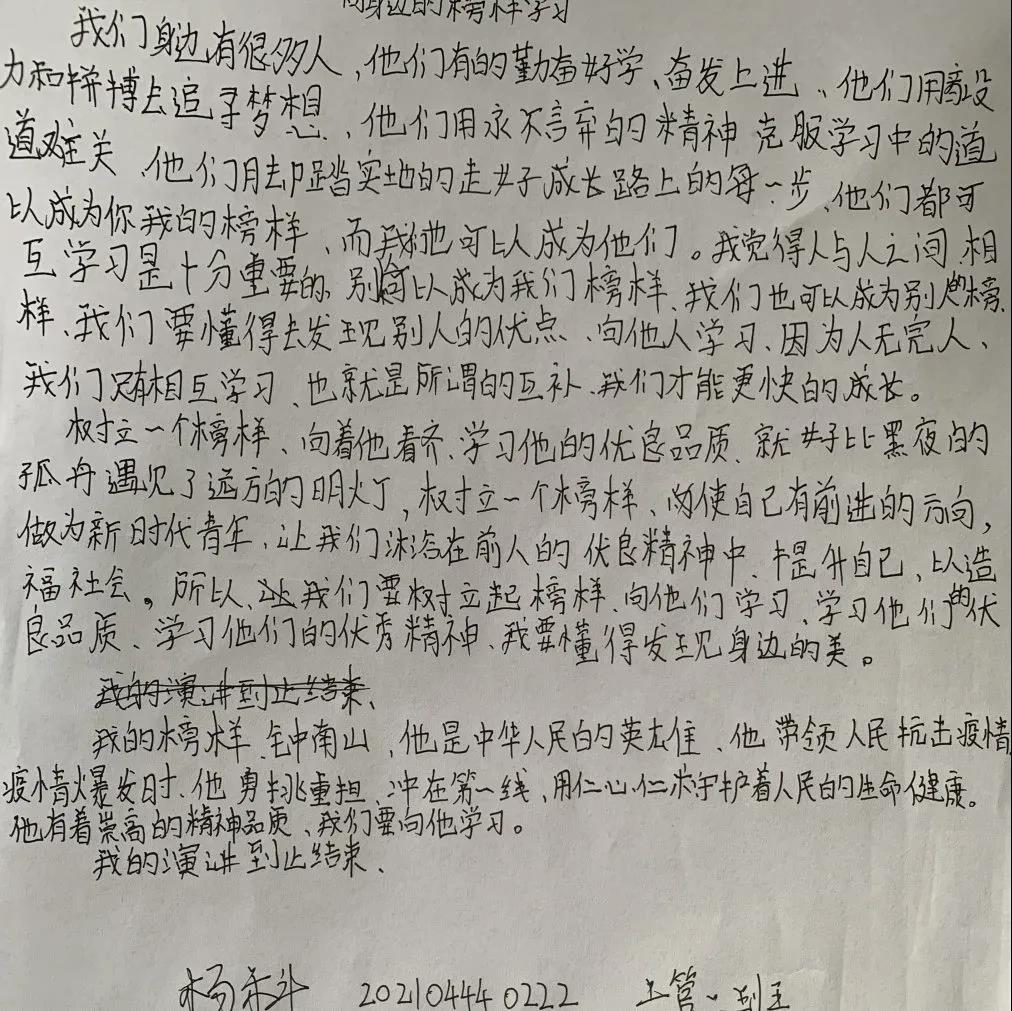 向身边的榜样学习
我们身边有很多人，他们有的勤奋好学、奋发上进、他们用
力和拼搏去追寻梦想、他们用永不言弃的精神克服学习中的道
道难关、他们用脚踏实地的走好成长路上的每一步、他们都可
以成为你我的榜样、而我们也可以成为他们。我觉得人与人之间相
互学习是十分重要的、别人可以成为我们榜样、我们也可以成为别人的榜
样、我们要懂得去发现别人的优点、向他人学习、因为人无完人、
我们只有相互学习、也就是所谓的互补、我们才能更快的成长。
树立一个榜样、向着他看齐、学习他的优良品质、就好比黑夜的
孤舟遇见了远方的明灯，树立一个榜样、使自己有前进的方向，
做为新时代青年、让我们沐浴在前人的优良精神中、提升自己、以造
福社会。所以、我们要树立起榜样、向他们学习、学习他们的优
良品质、学习他们的优秀精神、我要懂得发现身边的美。
我的演讲到止结束、
我的榜样、钟南山、他是中华人民的英雄、他带领人民抗击疫情
疫情爆发时、他勇挑重担、冲在第一线、用仁心仁术守护着人民的生命健康。
他有着崇高的精神品质、我们要向他学习。
我的演讲到止结束、
杨 20210444 0222 工管一班